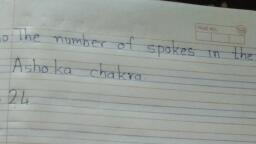 The number of spokes in the
Ashoka chakra
24